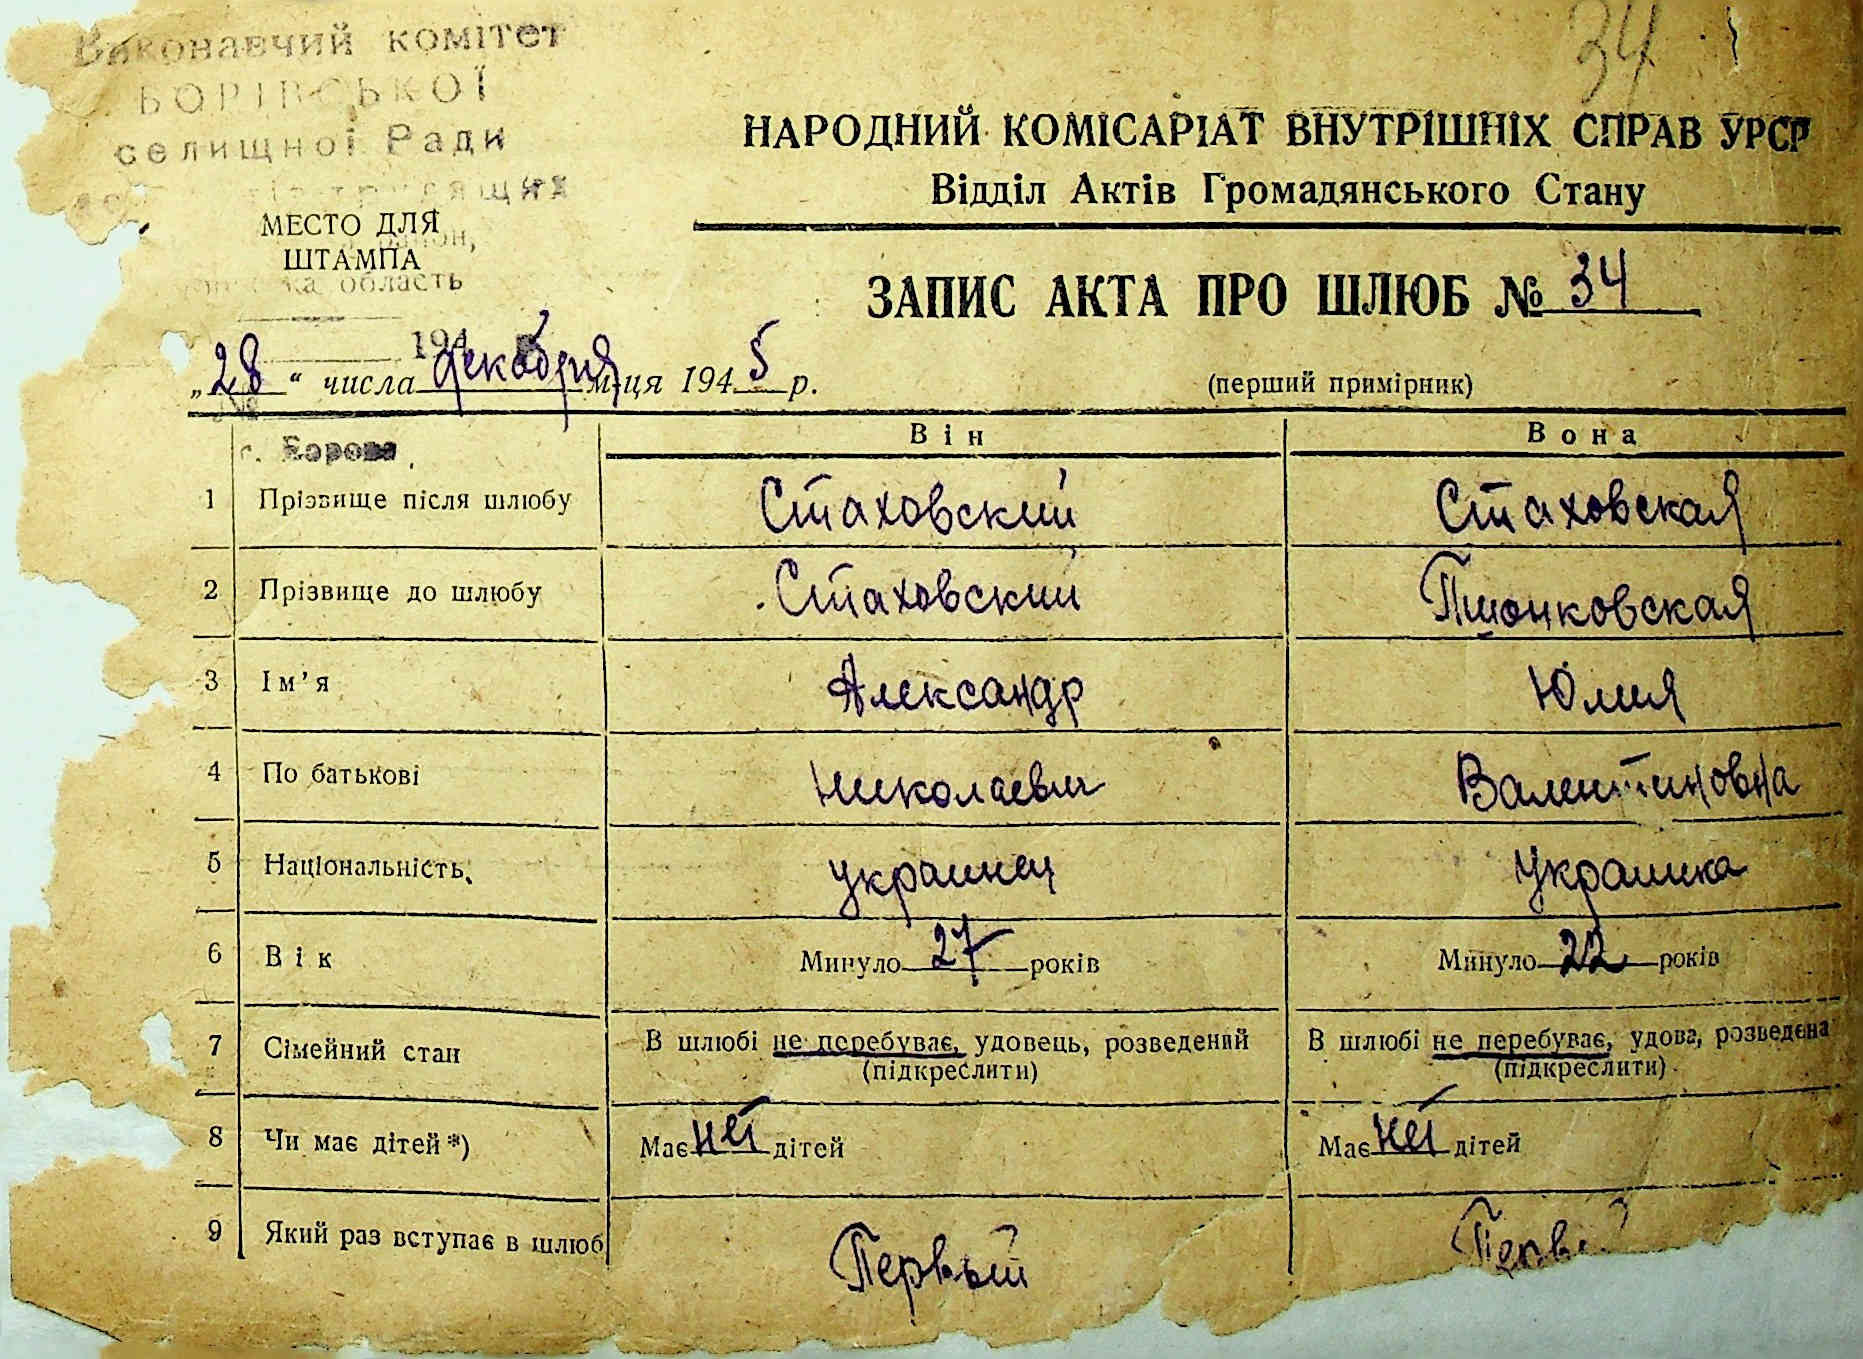 34
Виконавчий комітет
БОРІВСЬКОЇ
селищної Ради
трудящих
МЕСТО ДЛЯ
ШТАМПА
район,
область
194
НАРОДНИЙ КОМІСАРІАТ ВНУТРІШНІХ СПРАВ УРСР
Відділ Актів Громадянського Стану
ЗАПИС АКТА ПРО ШЛЮБ № 34
„28“ числа декабря м-ця 1945 р.
(перший примірник)
с. Борова
Він Вона
1 Прізвище після шлюбу Стаховский Стаховская
2 Прізвище до шлюбу Стаховский
3 Ім’я Александр Юлия
4 По батькові Николаевич Валентиновна
5 Національність украинец Украинка
6 Вік Минуло 27 років Минуло 22 років
7 Сімейний стан В шлюбі не перебуває, удовець, розведений В шлюбі не перебуває, удова, розведена
(підкреслити) (підкреслити)
8 Чи має дітей*) Має нет дітей Має нет дітей
9 Який раз вступає в шлюб Первый